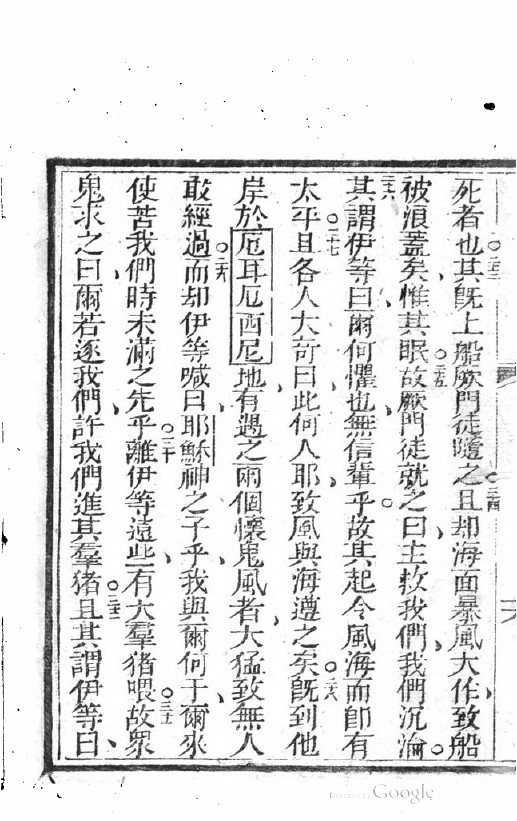 死者也其旣上船厥門徒隨之且却海面暴風大作致船
被浪蓋矣惟其眠故厥門徒就之曰主救我們我們沉淪
其謂伊等曰爾何懼也無信輩乎故其起令風海而卽有
太平且各人大奇曰此何人耶致風與海遵之矣旣到他
岸於厄耳厄西尼地有遇之兩個懷鬼風者大猛致無人
敢經過而却伊等喊曰耶穌神之子乎我與爾何干爾來
使苦我們時未滿之先乎離伊等遠些有大羣猪喂故眾
鬼求之曰爾若逐我們許我們進其羣猪且其謂伊等曰
Digitized by Google